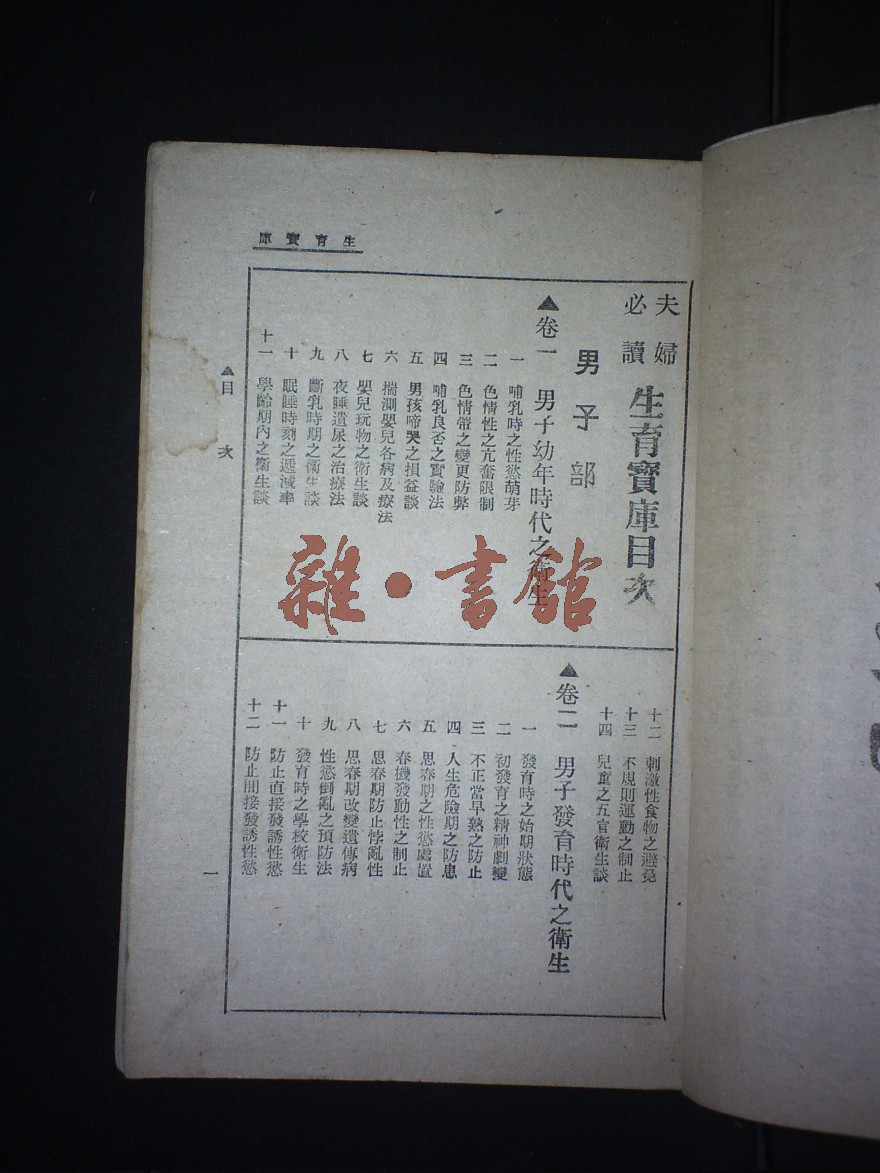 庫寶育生
夫婦
必讀
生育寶庫目次
男子部
▲卷一 男子幼年時代之衛生
一 哺乳時之性慾萌芽
二 色情性之亢奮限制
三 色情帶之變更防弊
四 哺乳良否之實驗法
五 男孩啼哭之損益談
六 揣測嬰兒各病及療法
七 嬰兒玩物之衛生談
八 夜睡遺尿之治療法
九 斷乳時期之衛生談
十 眠睡時刻之遞減率
十一 學齡期內之衛生談
十二 刺激性食物之避免
十三 不規則運動之制止
十四 兒童之五官衛生談
▲卷二 男子發育時代之衛生
一 發育時之始期狀態
二 初發育之精神劇變
三 不正當早熟之防止
四 人生危險期之防患
五 思春期之性慾處置
六 春機發動性之制止
七 思春期防止悖亂性
八 思春期改變遺傳病
九 性慾倒亂之預防法
十 發育時之學校衛生
十一 防止直接發誘性慾
十二 防止間接發誘性慾
▲目次
一
雜·書館